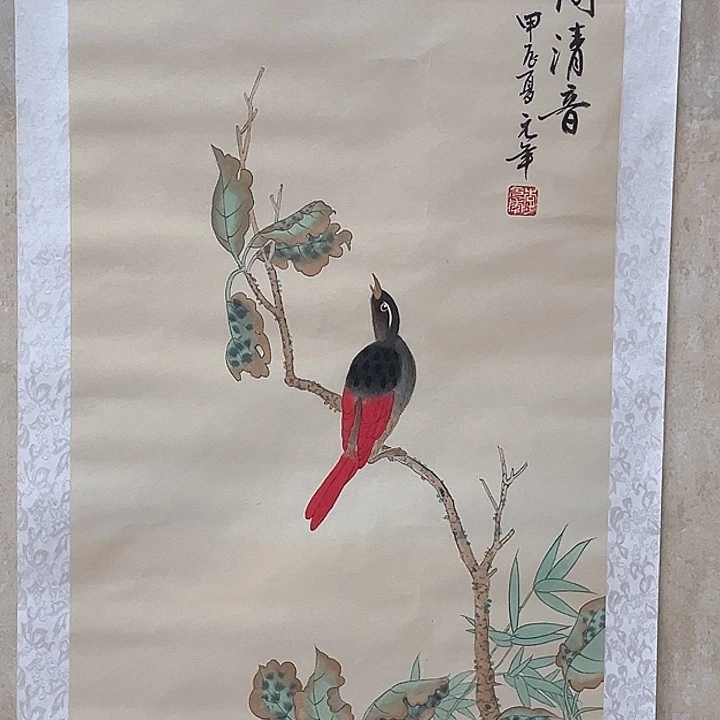 清音
甲辰夏 元年